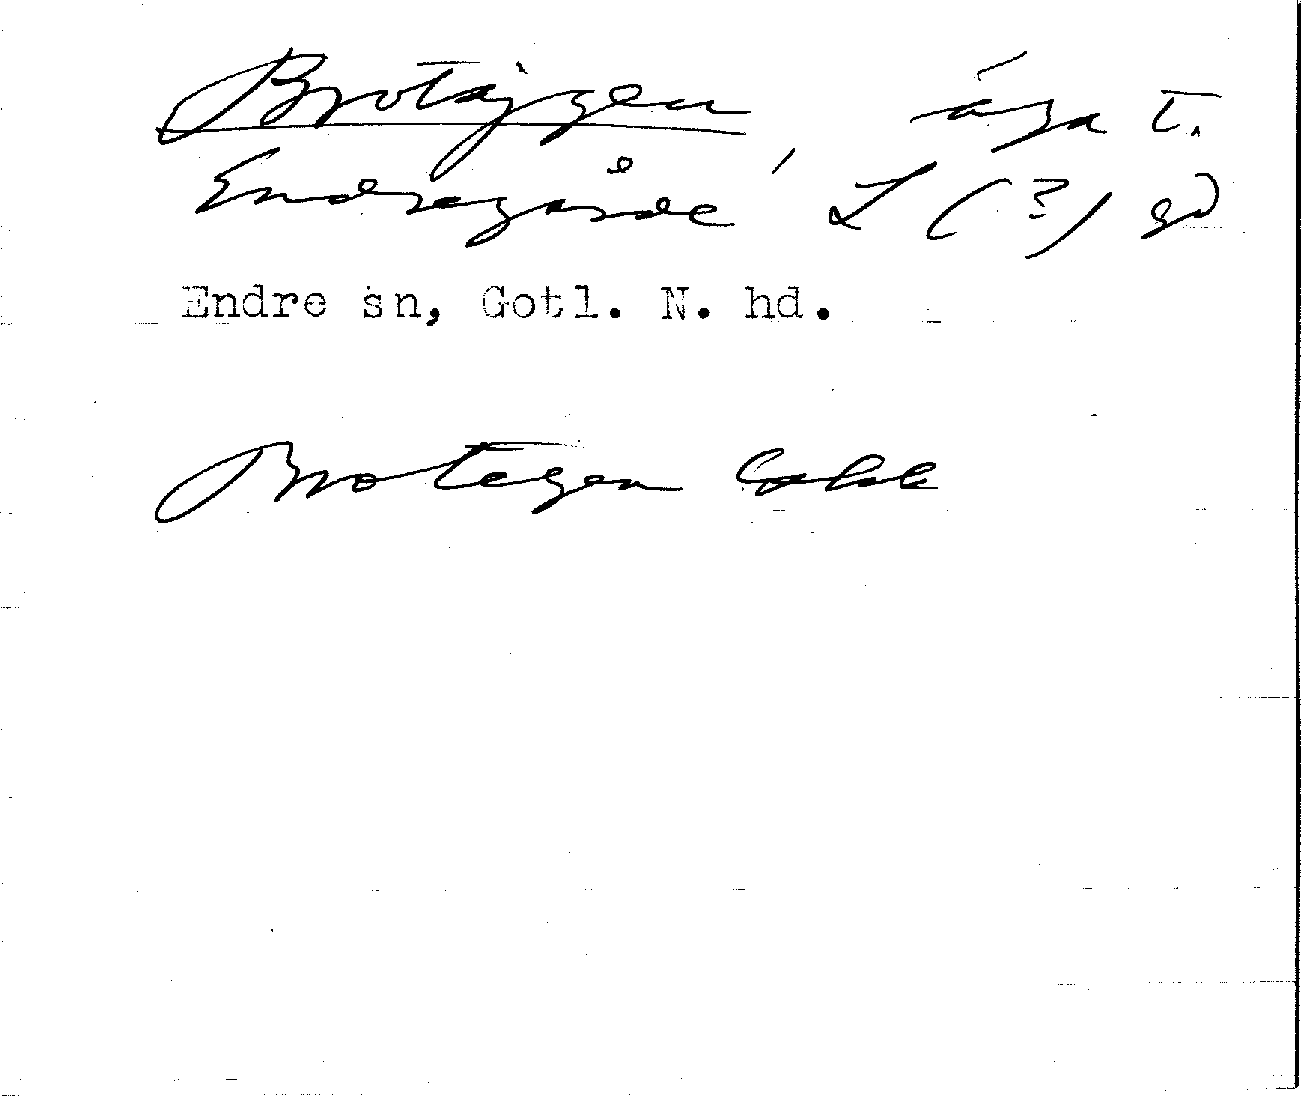 Brotäjgen, äga t.
Endregårde, L (?) gd
Endre sn, Gotl. N. hd.
Brotegen